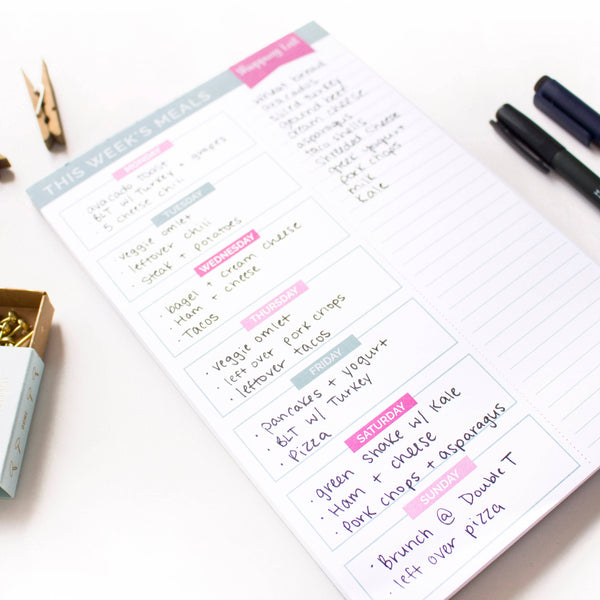 THIS WEEK'S MEALS
MONDAY
avacado toast
BLT w/ Turkey + grapes
5 cheese chili
TUESDAY
· veggie omlet
· leftover chili
· Steak + potatoes
WEDNESDAY
· bagel + cream cheese
· Ham + cheese
· Tacos
THURSDAY
· veggie omlet
· left over pork chops
· leftover tacos
FRIDAY
· pancakes + yogurt
· BLT w/ Turkey
· Pizza
SATURDAY
· green shake w/ Kale
· Ham + cheese
· Pork chops + asparagus
SUNDAY
· Brunch @ Double T
· left over pizza
Shopping List
wheat bread
avacados
sliced turkey
ground beef
cream cheese
asparagus
taco shells
shredded cheese
greek yogurt
pork chops
milk
Kale